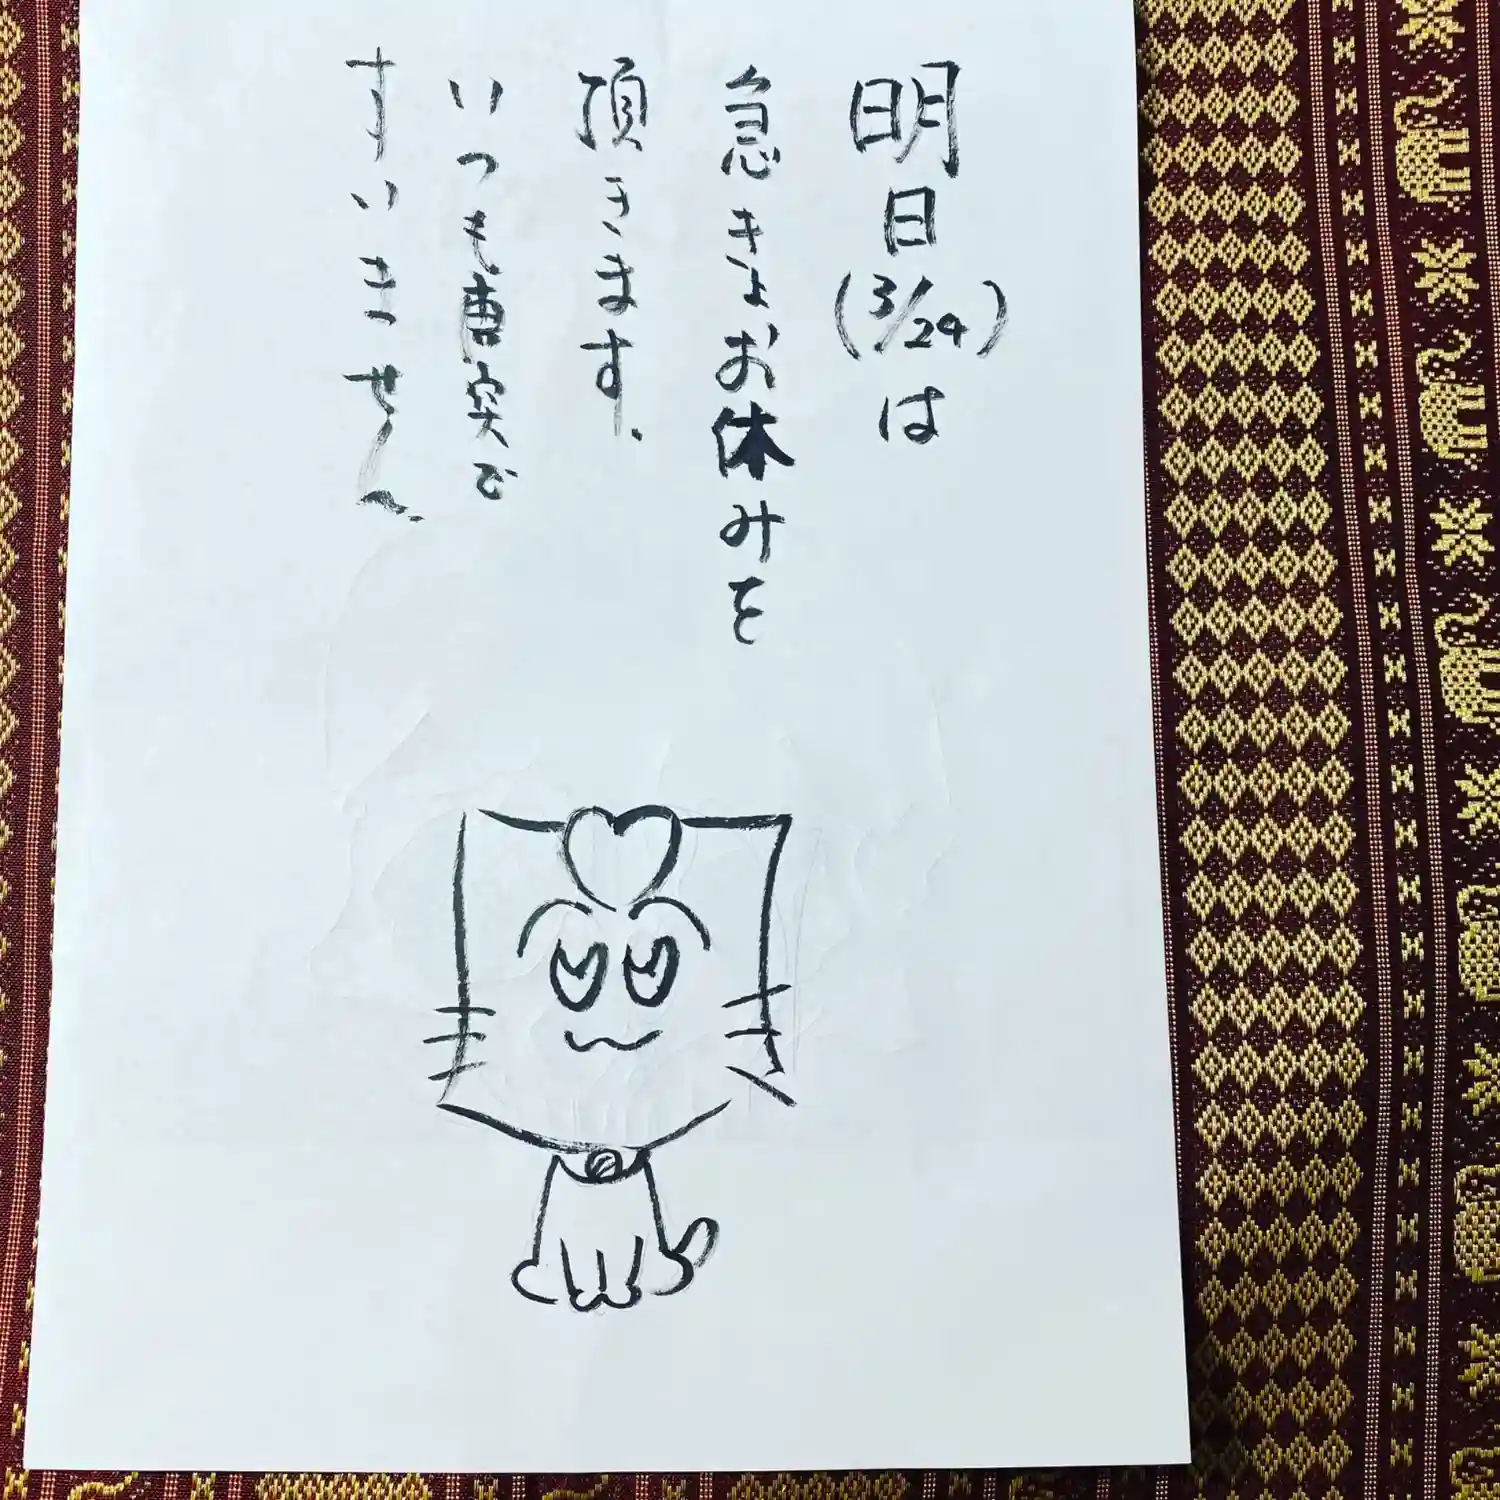 明日(3/24)は
急きょお休みを
頂きます、
いつも唐突で
すいません、